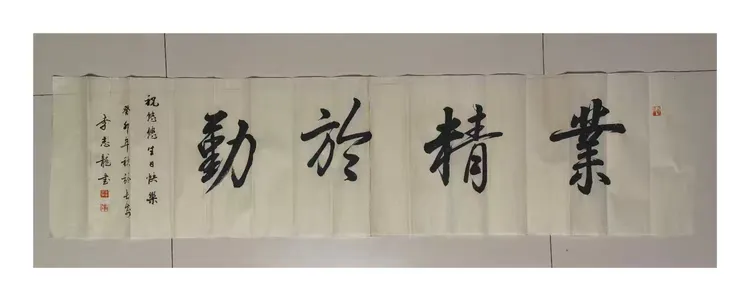 業精於勤
祝悠悠生日快樂
癸卯年秋於長安
李志龍書